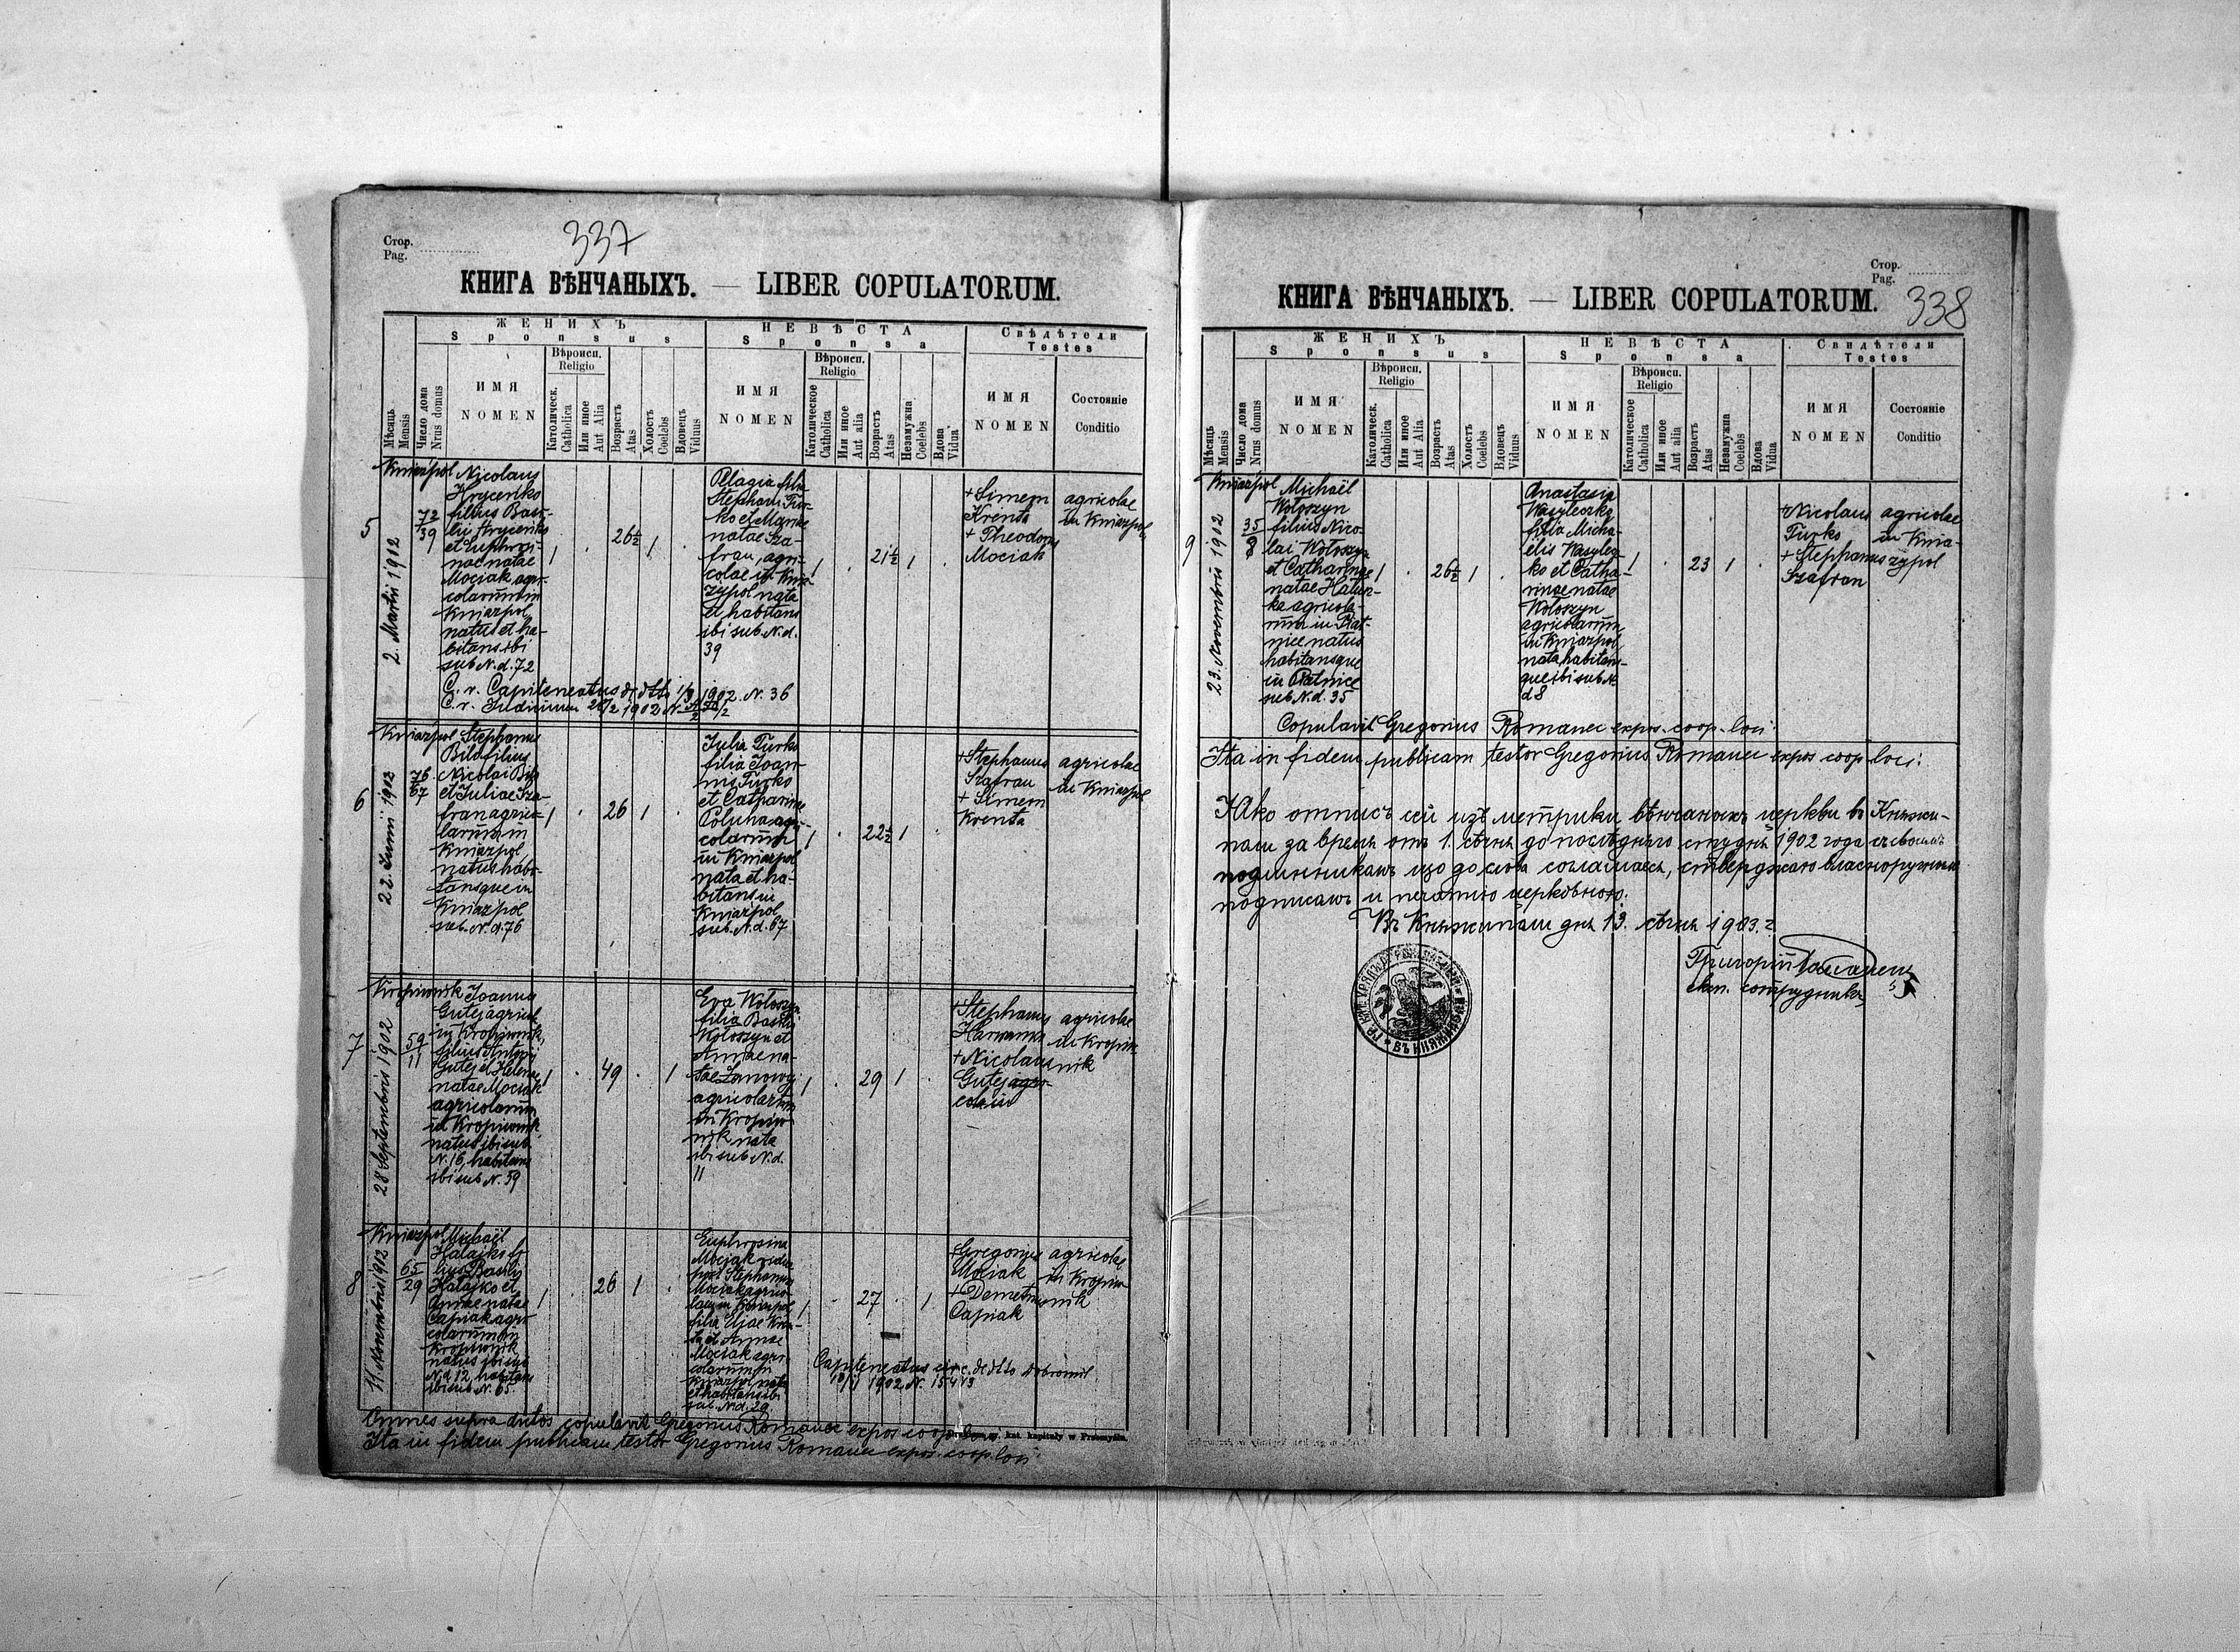 Стор.
Pag.
337
КНИГА ВѢНЧАНЫХЪ. — LIBER COPULATORUM.
ЖЕНИХЪ
Sponsus
НЕВѢСТА
Sponsa
Свѣдѣтели
Testes
Мѣсяць
Mensis
Число дома
Nrus domus
ИМЯ
NOMEN
Вѣроисп.
Religio
Католическ.
Catholica
Или иное
Aut Alia
Возрастъ
Atas
Холостъ
Coelebs
Вдовецъ
Viduus
ИМЯ
NOMEN
Вѣроисп.
Religio
Католическое
Catholica
Или иное
Aut alia
Возрастъ
Atas
Незамужна
Coelebs
Вдова
Vidua
ИМЯ
NOMEN
Состояніе
Conditio
5
2. Martii 1912
72
39
Kniażpol Nicolaus
Hryceńko
filius Basi-
lii Hryceńko
et Euphrosi-
nae natae
Mociak agri-
colarum in
Kniażpol
natus et ha-
bitans ibi
sub N. d. 72
1
26½
1
Pelagia filia
Stephani Tur-
ko et Mariae
natae Sza-
fran, agri-
colae in Knia-
żypol nata
et habitans
ibi sub N. d.
39
1
21½
1
+ Simeon
Krenta
+ Theodorus
Mociak
agricolae
in Kniażpol
C. r. Capiteneatus
1902. N. 36
C. r. Judicium 26/2 1902 N.
6
22. Junii 1902
76
67
Kniażpol Stephanus
Bilo filius
Nicolai Bilo
et Juliae Sza-
fran agrico-
larum in
Kniażpol
natus habi-
tansque in
Kniażpol
sub. N. d. 76
1
26
1
Julia Turko
filia Joan-
nis Turko
et Catharinae
Poluha agri-
colarum
in Kniażpol
nata et ha-
bitans in
Kniażpol
sub. N. d. 67
1
22½
1
+ Stephanus
Szafran
+ Simeon
Krenta
agricolae
in Kniażpol
7
28 Septembris 1902
59
11
Kropiwnik Joannes
Gutej agricola
in Kropiwnik,
filius Antonii
Gutej et Helenae
natae Mociak
agricolarum
in Kropiwnik
natus ibi sub
N. 16, habitans
ibi sub N. 59
1
49
1
Eva Wołoszyn
filia Basilii
Wołoszyn et
Annae na-
tae
agricolarum
in Kropiw-
nik nata
ibi sub N. d.
11
1
29
1
+ Stephanus
+ Nicolaus
Gutej agri-
colae
agricolae
in Kropiw-
nik
8
11. Novembris 1912
65
29
Kniażpol Michaël
Hatajko fi-
lius Basilii
Hatajko et
Annae natae
Capiak agri-
colarum in
Kropiwnik
natus ibi sub
N. d. 12, habitans
ibi sub N. 65
1
26
1
Euphrosina
Mociak vidua
post Stephanum
Mociak agrico-
lam in Kniażpol
filia Eliae Kren-
ta et Annae
Mociak agri-
colarum in
Kniażpol nata
et habitans ibi
sub. N. d. 29
1
27
1
+ Gregorius
Mociak
+ Demetrius
Capiak
agricolae
in Kropiw-
nik
Capiteneatus circ. de dtto Dobromil
1902 N. 15413
Omnes supra dictos copulavit Gregorius Romanec expos. coop. loci
Ita in fidem publicam testor Gregorius Romanec expos. coop. loci
kat. kapituły w Przemyślu.
Стор.
Pag.
338
КНИГА ВѢНЧАНЫХЪ. — LIBER COPULATORUM.
ЖЕНИХЪ
Sponsus
НЕВѢСТА
Sponsa
Свидѣтели
Testes
Мѣсяць
Mensis
Число дома
Nrus domus
ИМЯ
NOMEN
Вѣроисп.
Religio
Католическ.
Catholica
Или иное
Aut Alia
Возрастъ
Atas
Холостъ
Coelebs
Вдовецъ
Viduus
ИМЯ
NOMEN
Вѣроисп.
Religio
Католическое
Catholica
Или иное
Aut alia
Возрастъ
Atas
Незамужна
Coelebs
Вдова
Vidua
ИМЯ
NOMEN
Состояніе
Conditio
9
23. Novembris 1912
35
8
Kniażpol Michaël
Wołoszyn
filius Nico-
lai Wołoszyn
et Catharinae
natae Hatun-
ka agricola-
rum in Piat-
nice natus
habitansque
in Piatnice
sub. N. d. 35
1
26½
1
Anastasia
Wasyleczko
filia Micha-
elis Wasylecz-
ko et Catha-
rinae natae
Wołoszyn
agricolarum
in Kniażpol
nata habitans-
que ibi sub N.
d 8
1
23
1
+ Nicolaus
Turko
+ Stephanus
Szafran
agricolae
in Knia-
żypol
Copulavit Gregorius Romanec expos. coop. loci
Ita in fidem publicam testor Gregorius Romanec expos coop loci:
Яко отписъ сей изъ метрики вѣнчаныхъ церкви въ Княжи-
поли за время отъ 1. сѣчня до послѣдняго студня 1902 года съ своимъ
подлинникамъ що до слова соглашаеся, ствержаю власноручнымъ
подписомъ и печатію церковною.
Въ Княжиполи дня 13. сѣчня 1903. г.
Григорій Романецъ
екп. сотрудникъ